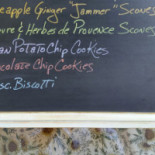 eapple Ginger "Jammer" Scones
ure & Herbes de Provence Scones
an Potato Chip Cookies
colate Chip Cookies
sc. Biscotti